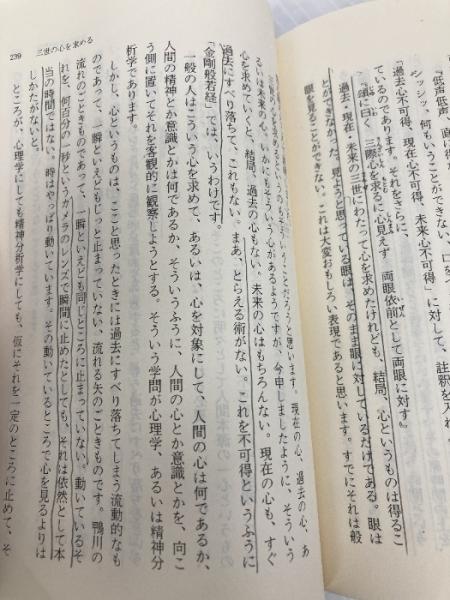 「低声低声、
シッシッ、何もいうことができない。口を
「過去心不可得、現在心不可得、未来心不可得」に対して、註釈を入れ
『』であります。それをさらに、
「頌に曰く 三際心を求るに心見えず 両眼依前として両眼に対す」
過去・現在・未来の三世にわたって心を求めたけれども、結局、心というものは得るこ
とができなかった。見ようと思っている眼は、そのまま眼に対しているだけである。眼は
眼を見ることができない。これは大変おもしろい表現であると思います。すでにそれは般
239 三世の心を求める
いうことだろうと思います。現在の心、過去の心、あ
るいは未来の心、いかにもそういう心があるようですが、今申しましたように、そういう
心を求めていくと、結局、過去の心もない、未来の心はもちろんない。現在の心も、すぐ
過去にすべり落ちて、これもない。まあ、とらえる術がない。これを不可得というふうに
『金剛般若経』では、いうわけです。
一般の人はこういう心を求めて、あるいは、心を対象にして、人間の心は何であるか、
人間の精神とか意識とかは何であるか、そういうふうに、人間の心とか意識とかを、向こ
う側に置いてそれを客観的に観察しようとする。そういう学問が心理学、あるいは精神分
析学であります。
しかし、心というものは、ここと思ったときには過去にすべり落ちてしまう流動的なも
のであって、一瞬といえどもじっと止まっていない、流れる矢のごときものです。鴨川の
流れのごときものであって、一瞬といえども同じところに止まっていない。動いているそ
れを、何百分の一秒というカメラのレンズで瞬間に止めたとしても、それは依然として本
当の時間ではない。時はやっぱり動いています。その動いているところで心を見るよりは
しかたがないと。
ところが、心理学にしても精神分析学にしても、仮にそれを一定のところに止めて、そ